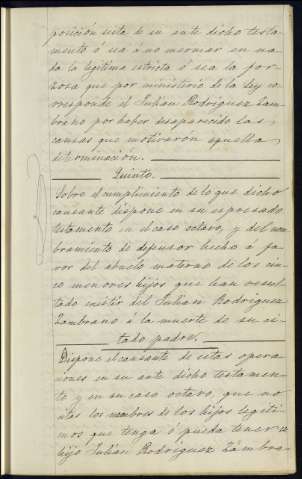 posición sesta de su ante dicho testa-
mento ó sea á no mermar en na-
da la legitima estricta ó sea la for-
zosa que por ministerio de la ley co-
rresponde al Julian Rodriguez Zam-
brano por haber desaparecido las
causas que motivaron aquella
determinación.
Quinto.
Sobre el cumplimiento de lo que dicho
causante dispone en su espresado
testamento en el caso octavo, y del nom-
bramiento de defensor hecho á fa-
vor del abuelo materno de los cin-
co menores hijos que han resul-
tado existir del Julian Rodriguez
Zambrano á la muerte de su ci-
tado padre.
Dispone el causante de estas opera-
ciones en su ante dicho testamen-
to y en su caso octavo, que
los nombres de los hijos legiti-
mos que tenga ó pueda tener su
hijo Julian Rodriguez Zambra-